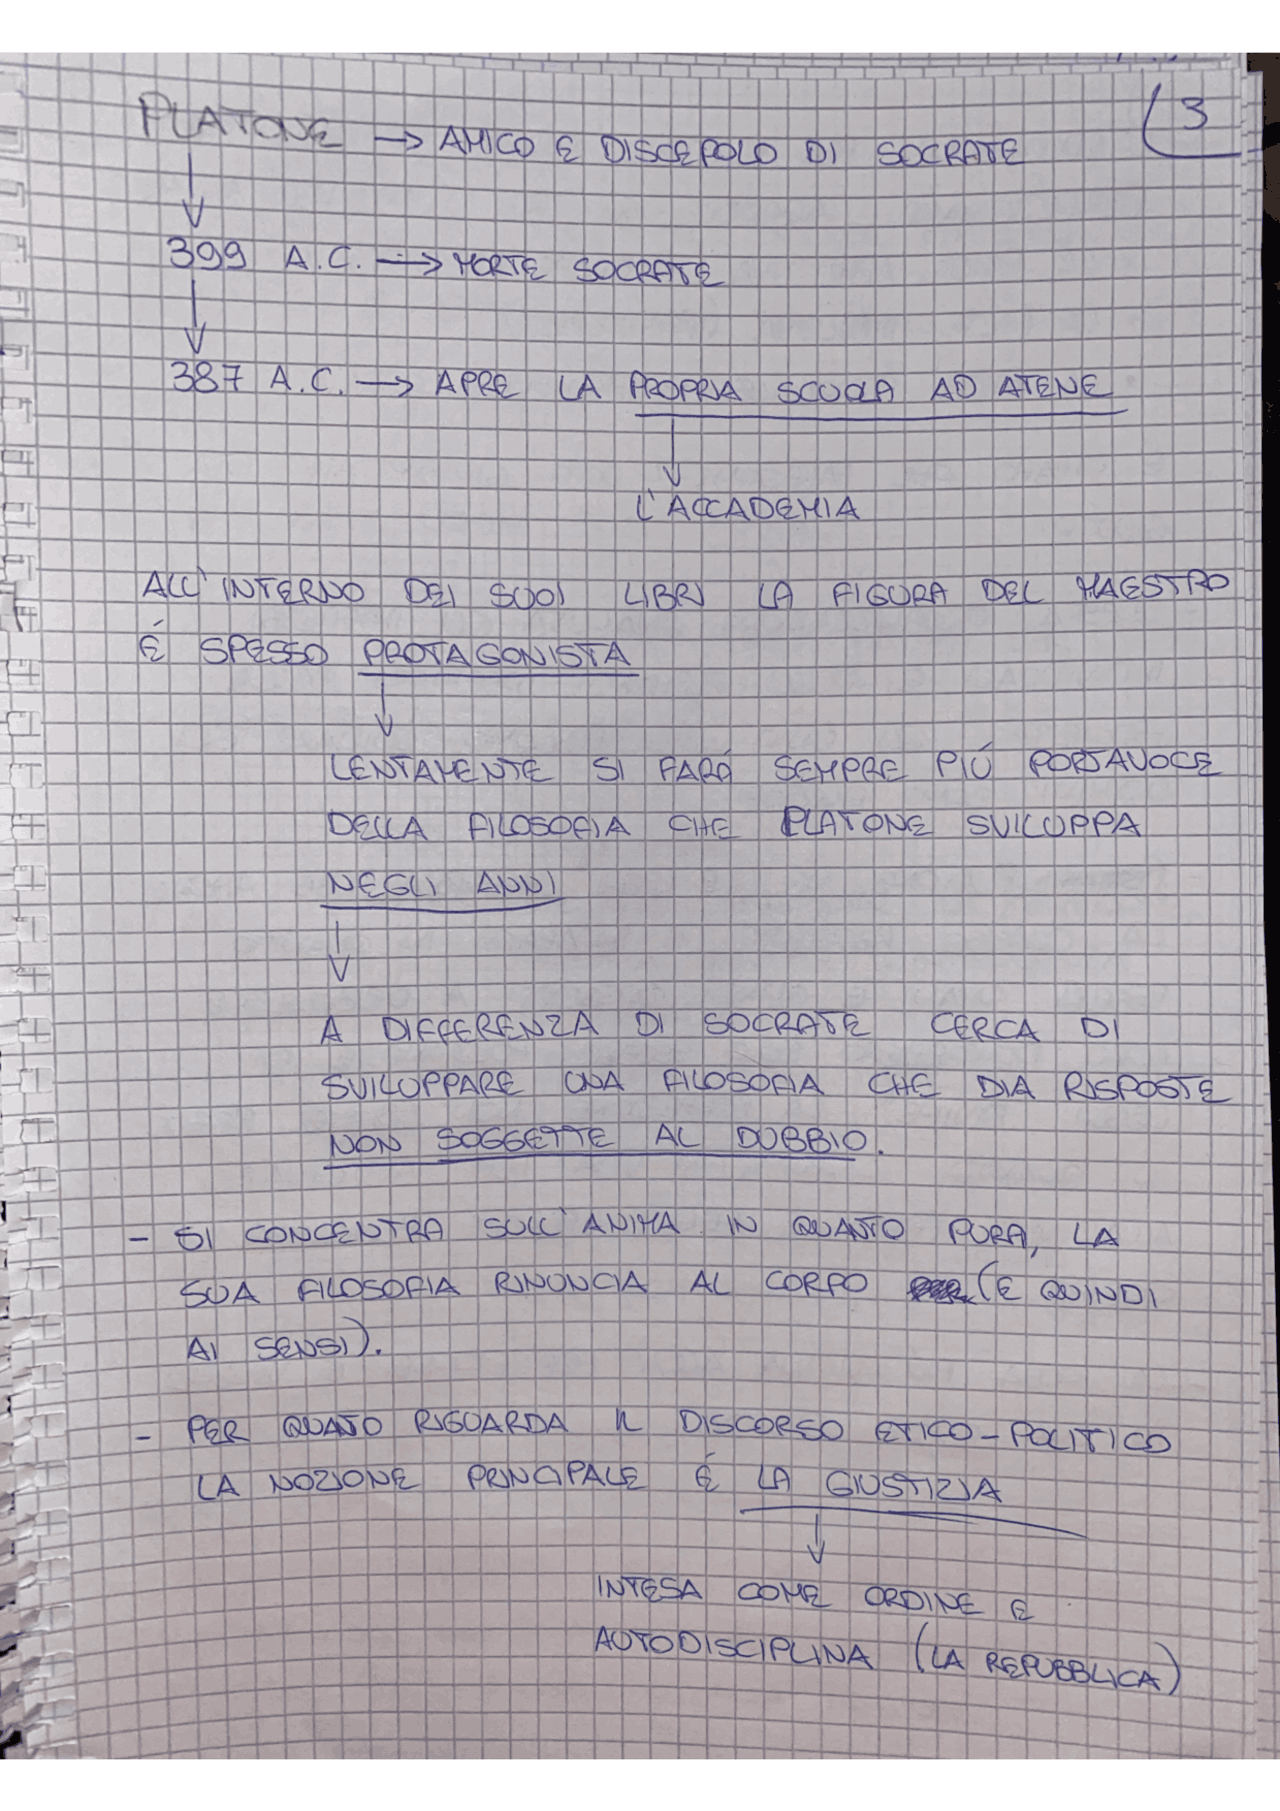 3
PLATONE → AMICO E DISCEPOLO DI SOCRATE
399 A.C. → MORTE SOCRATE
387 A.C. → APRE LA PROPRIA SCUOLA AD ATENE
L'ACCADEMIA
ALL'INTERNO DEI SUOI LIBRI LA FIGURA DEL MAESTRO
É SPESSO PROTAGONISTA
LENTAMENTE SI FARÁ SEMPRE PIÚ PORTAVOCE
DELLA FILOSOFIA CHE PLATONE SVILUPPA
NEGLI ANNI
A DIFFERENZA DI SOCRATE CERCA DI
SVILUPPARE UNA FILOSOFIA CHE DIA RISPOSTE
NON SOGGETTE AL DUBBIO.
- SI CONCENTRA SULL'ANIMA IN QUANTO PURA, LA
SUA FILOSOFIA RINUNCIA AL CORPO (E QUINDI
AI SENSI).
- PER QUANTO RIGUARDA IL DISCORSO ETICO-POLITICO
LA NOZIONE PRINCIPALE É LA GIUSTIZIA
INTESA COME ORDINE E
AUTODISCIPLINA (LA REPUBBLICA)